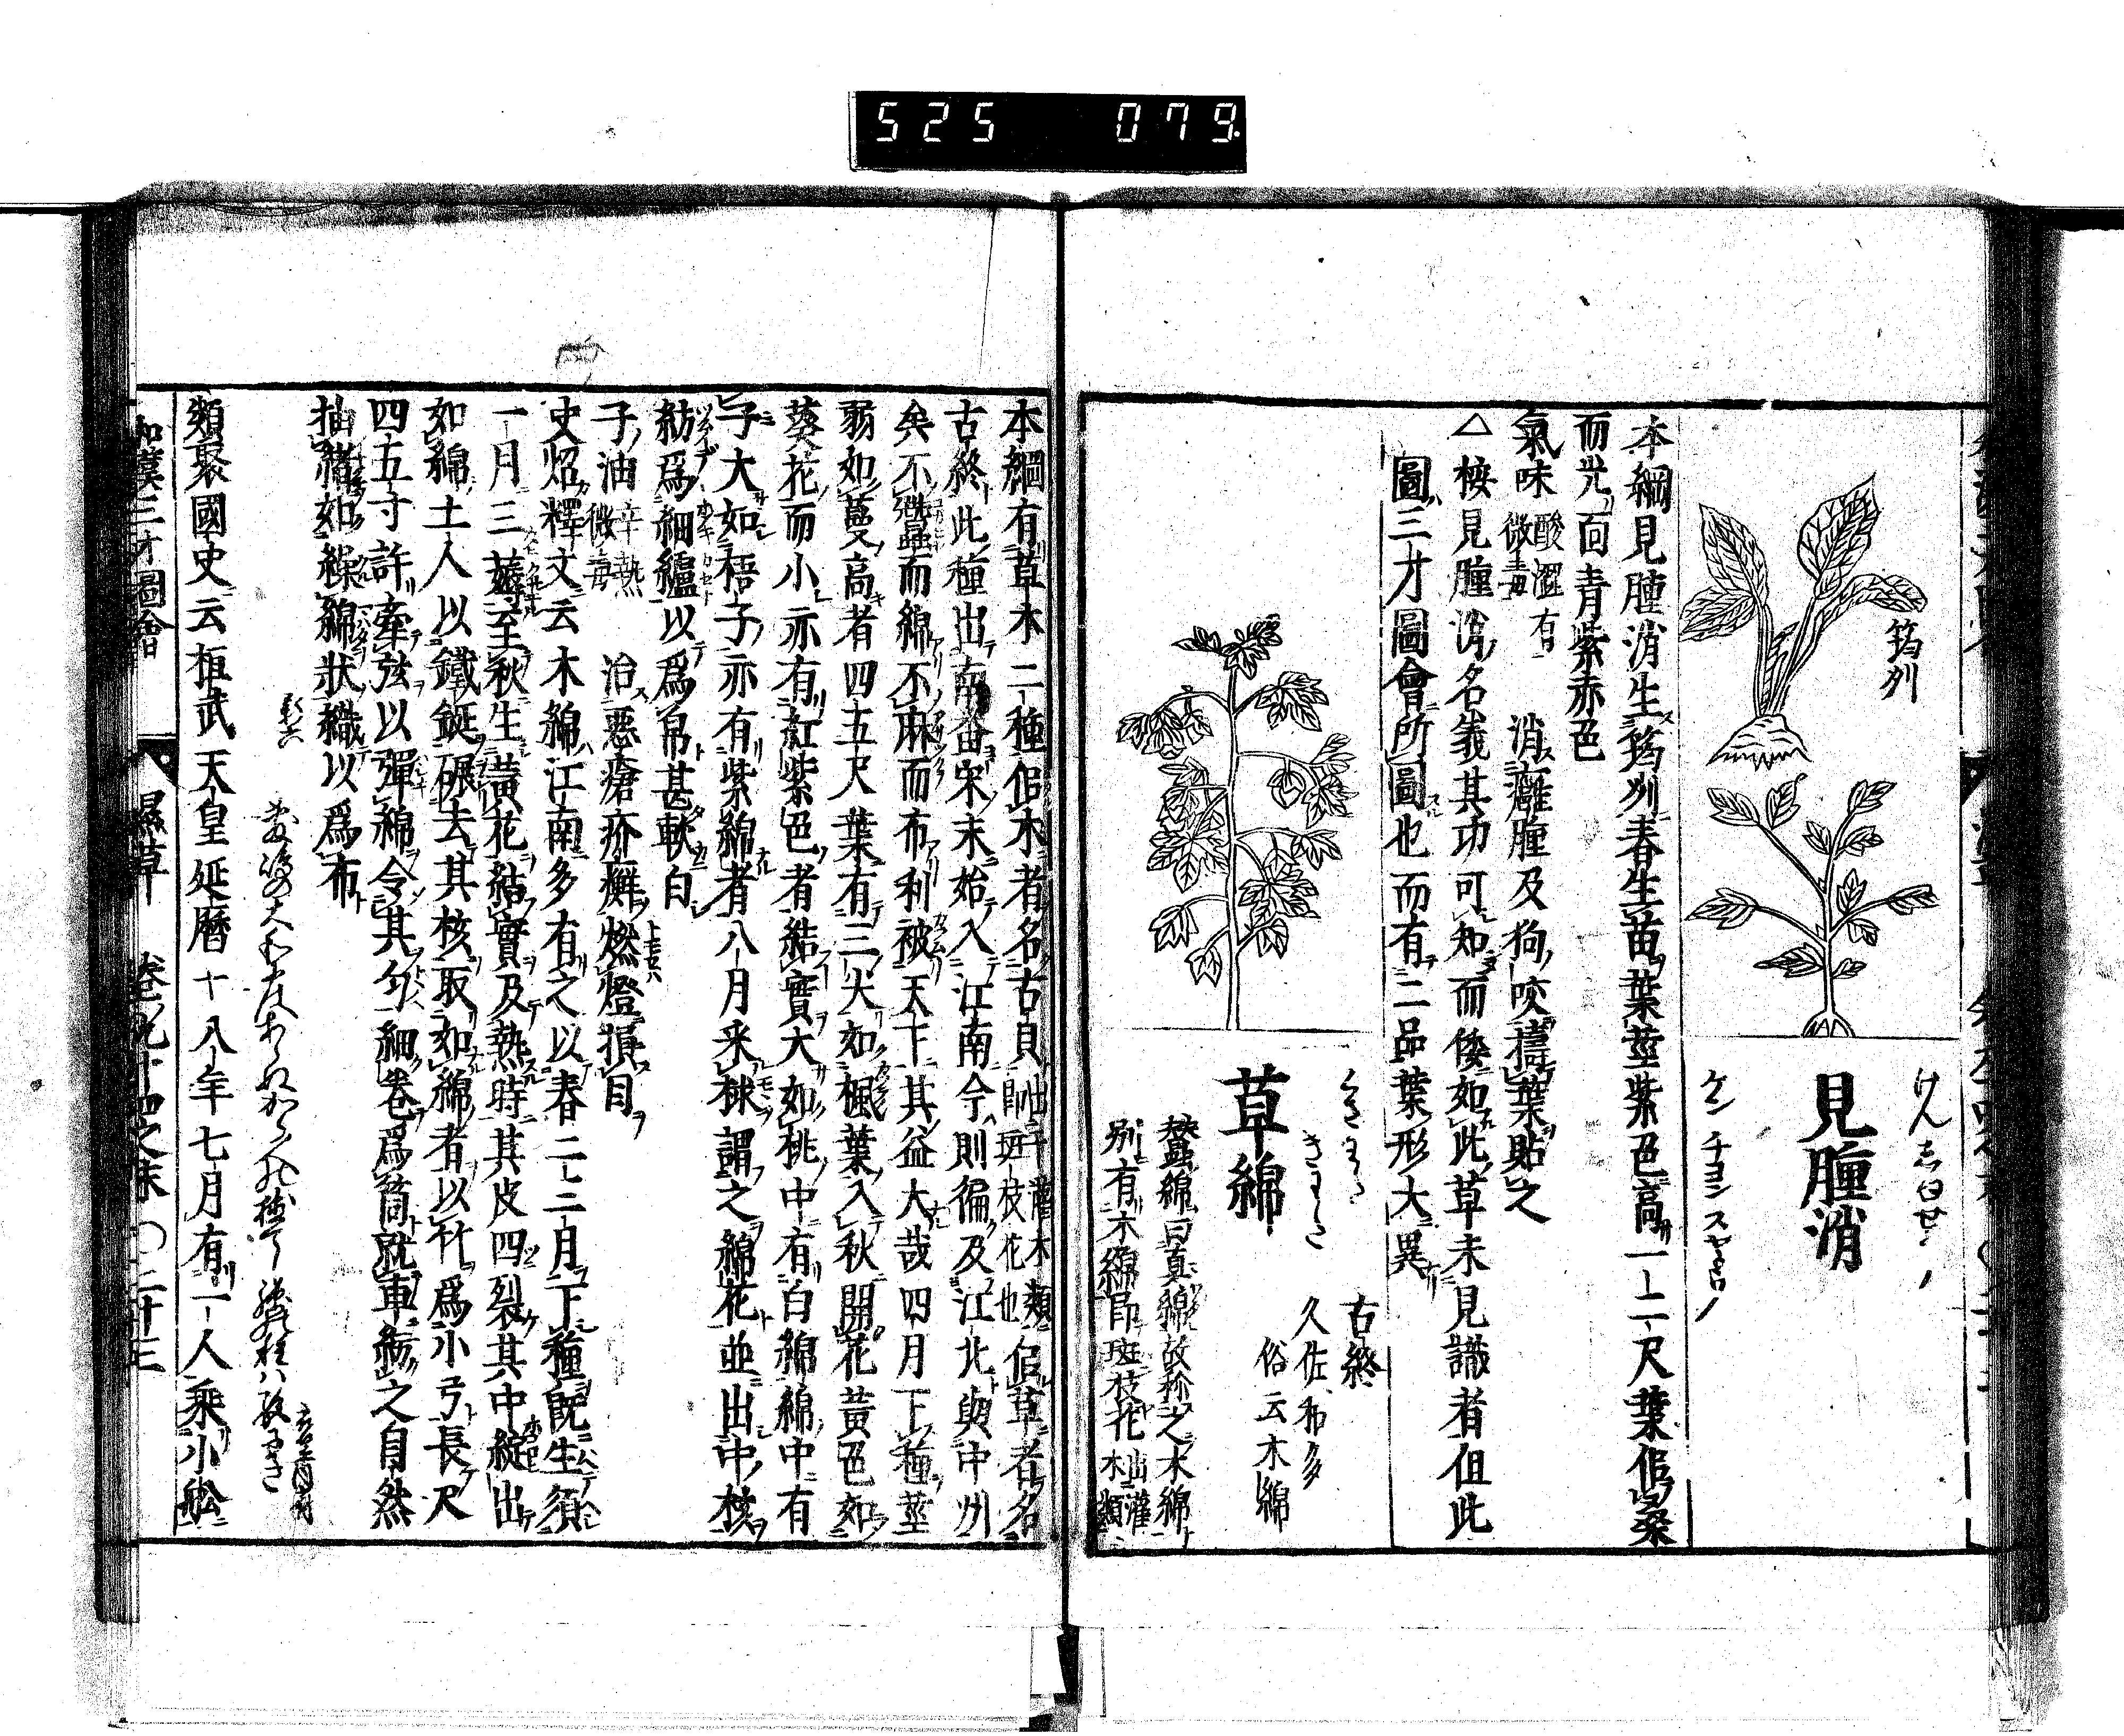 525 079
筠州
見腫消
けんしゆせう
ケン チヨン スヤ゜ウ
本綱見腫消生筠州春生苗葉莖紫色高一二尺葉佀桑
而光面青紫赤色
氣味 酸澀有微毒 消癰腫及狗咬擣葉貼之
△桉見腫消名義其功可知而倭如此草未見識者但此
圖三才圖會所圖也而有二品葉形大異
草綿
くさわた
きわた
古終
久佐和多
俗云木綿
蠶綿曰真綿故称之木綿
別有木綿即斑枝花 出灌木類
本綱有草木二種佀木者名古貝 出于灌木類即斑枝花也 佀草者名
古終此種出南番宋末始入江南今則徧及江北與中州
矣不蠶而綿不麻而布利被天下其益大哉四月下種莖
弱如蔓高者四五尺葉有三尖如楓葉入秋開花黃色如
葵花而小亦有紅紫色者結實大如桃中有白綿綿中有
子大如梧子亦有紫綿者八月采𣖯謂之綿花並出中核
紡爲細纑以爲帛甚軟白
子油 辛熱微毒 治惡瘡疥癬燃燈損目
史炤釋文云木綿江南多有之以春二三月下種既生須
一月三薅至秋生黃花結實及熟時其皮四裂其中綻出
如綿土人以鐵鋌碾去其核取如綿者以竹爲小弓長尺
四五寸許牽弦以彈綿令其匀細卷爲筒就車紡之自然
抽緖如繅綿狀織以爲布
類聚國史云桓武天皇延曆十八年七月有一人乘小舩
和漢三才圖會 濕草 卷九十四之末 〇二十三